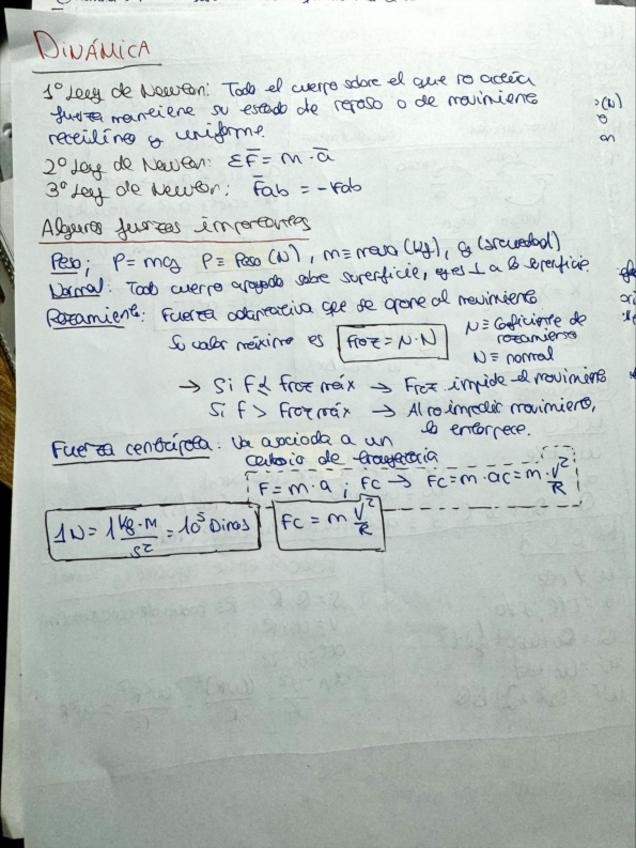 DINÁMICA
1º Ley de Newton: Todo el cuerpo sobre el que no actúa
fuerza mantiene su estado de reposo o de movimiento
rectilíneo y uniforme.
2º Ley de Newton: ΣF̄ = m · ā
3º Ley de Newton: F̄ab = -Fab
Algunas fuerzas importantes
Peso; P = mg P ≡ Peso (N), m ≡ masa (kg), g (gravedad)
Normal: Todo cuerpo apoyado sobre superficie, es ⊥ a la superficie.
Rozamiento: Fuerza que se opone al movimiento
Su valor máximo es Froz = N · N N ≡ Coeficiente de
rozamiento
N ≡ normal
→ Si F ≤ Froz máx → Froz impide el movimiento
Si F > Froz máx → Al no impedir movimiento,
lo entorpece.
Fuerza centrípeta: Va asociada a un
cambio de trayectoria
F = m · a ; FC → FC = m · ac = m · V²/R
1N = 1 Kg · M/s² = 10⁵ Dinas FC = m V²/R